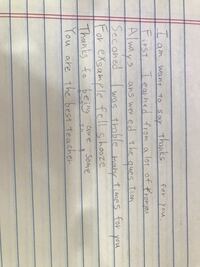 I am want to say thanks for you.
First I earned from a lot of
Always answered the question
Seconed I was troble many times for you
For exsample fell shooze
Thanks to being care some
You are the best teacher